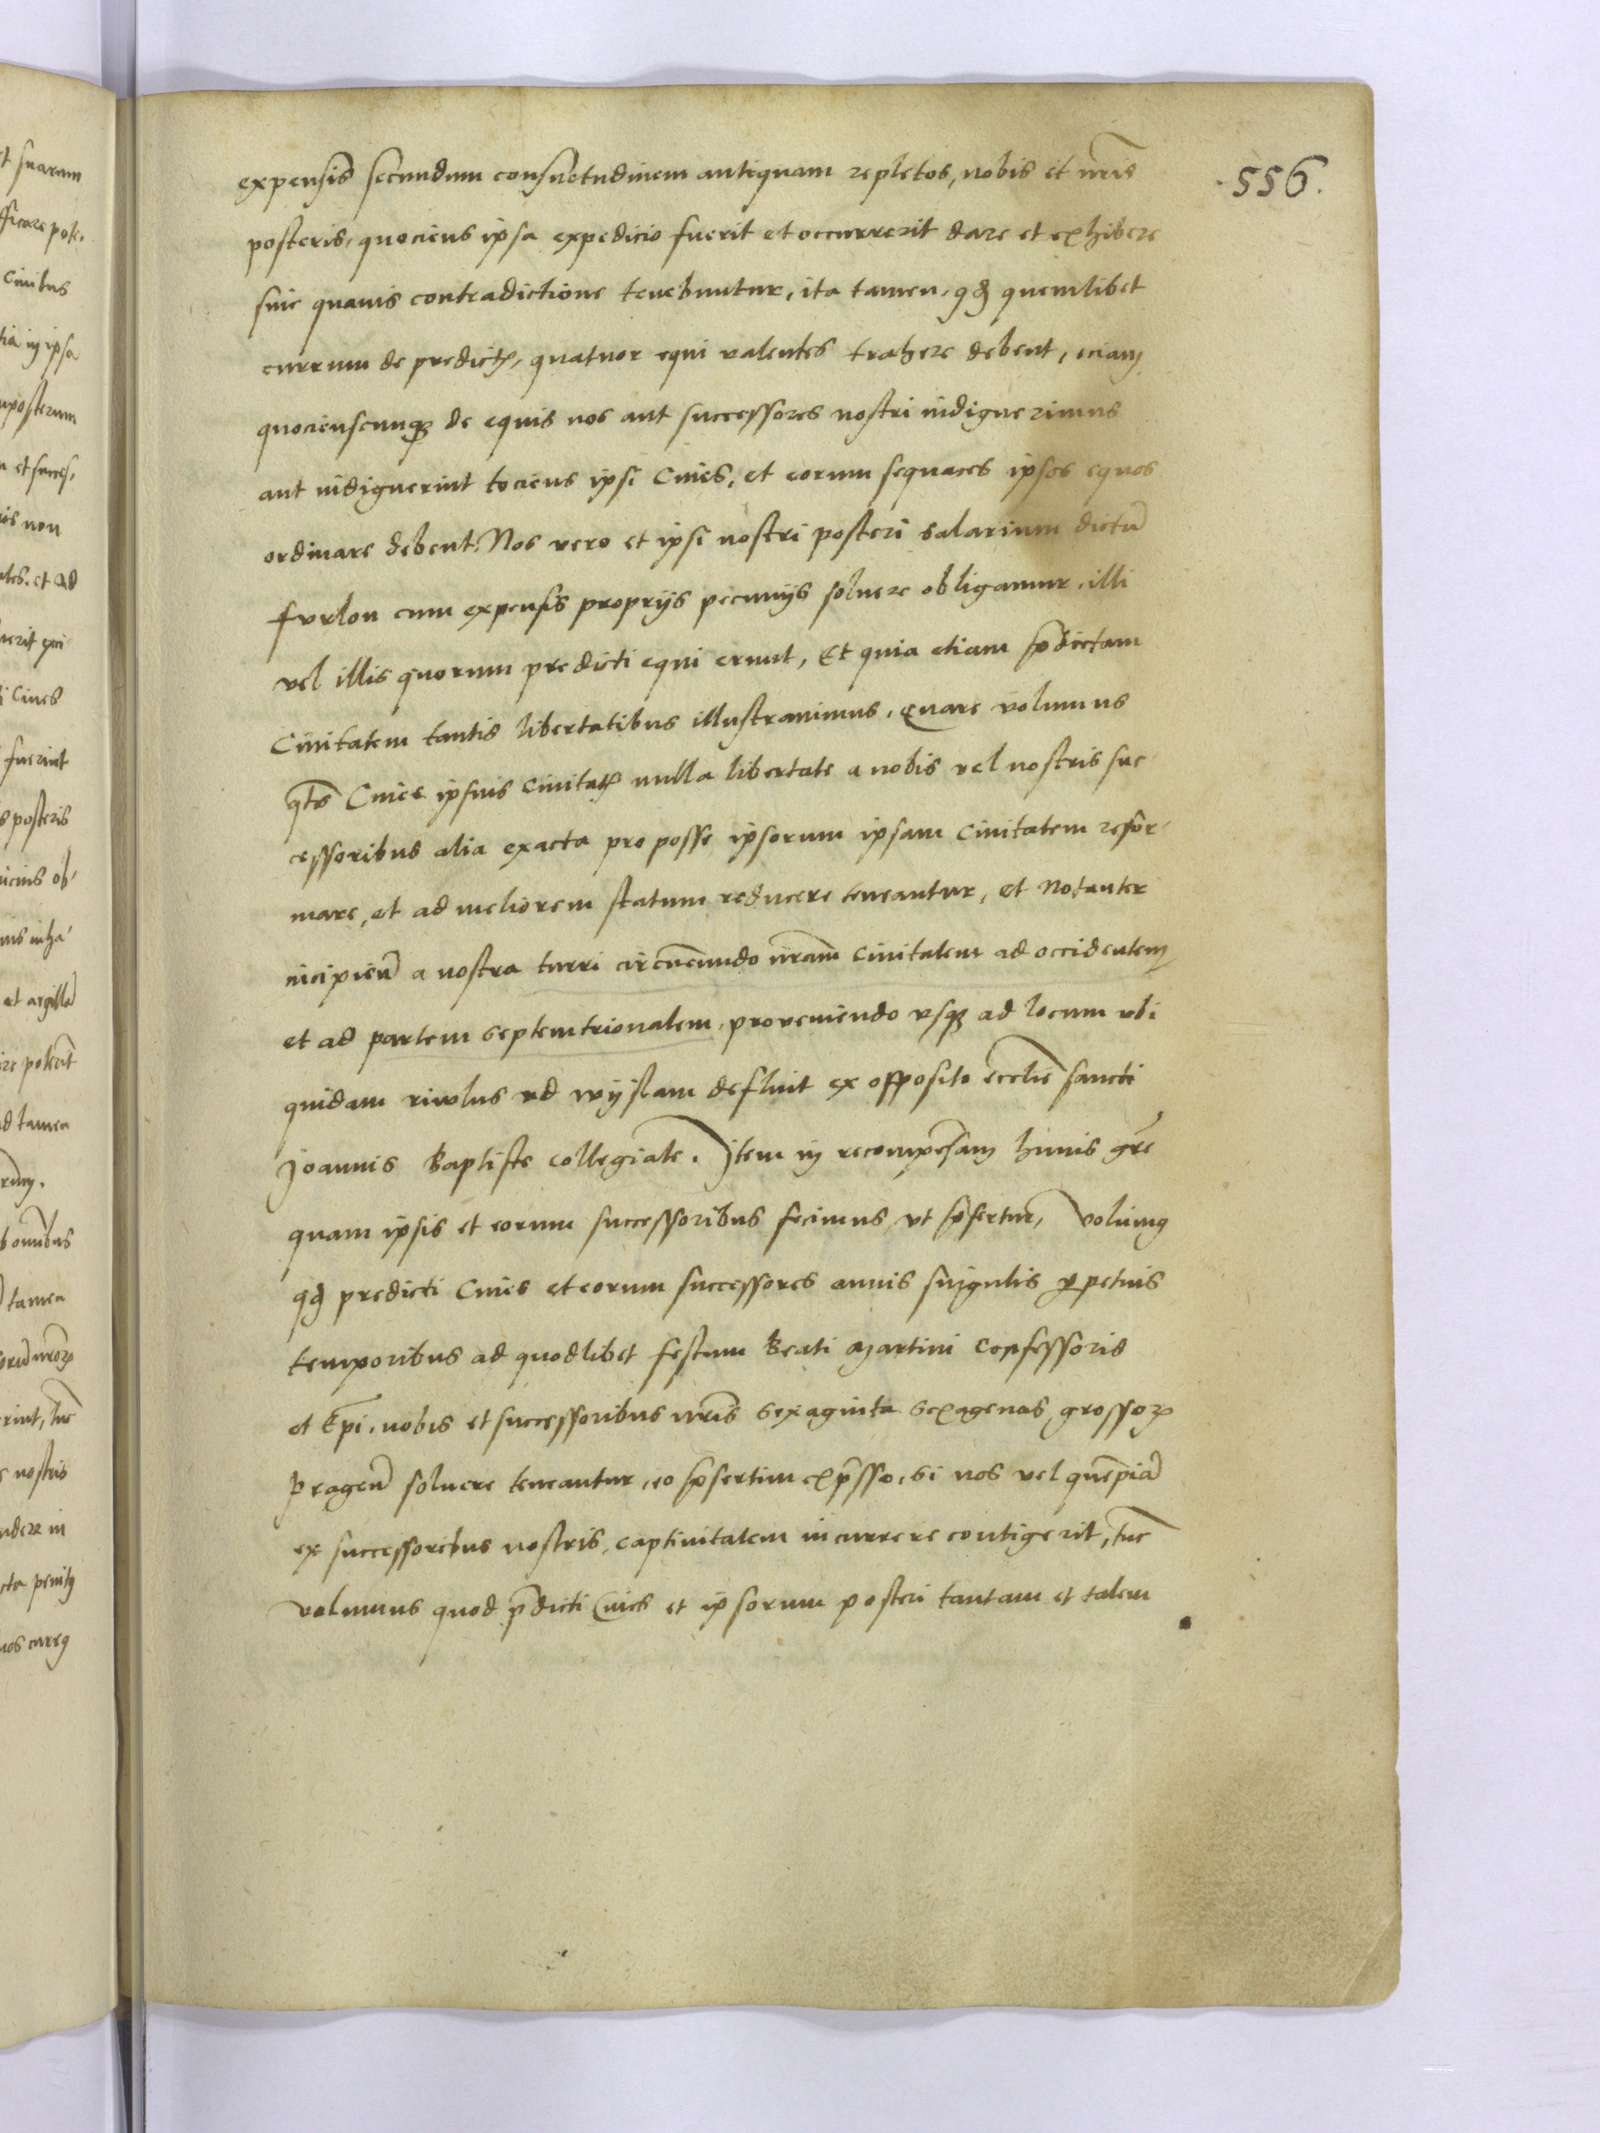 .556.
expensis secundum consuetudinem antiquam repletos, nobis et nr̄is
posteris, quociens ipsa expedicio fuerit et occurrerit dare et exhibere
sine quauis contradictione tenebuntur, ita tamen, qd quemlibet
currum de predictis, quatuor equi valentes trahere debent, eciam
quocienscunq de equis nos aut successores nostri indiguerimus
aut indiguerint tociens ipsi Ciues, et eorum sequaces ipsos equos
ordinare debent. Nos vero et ipsi nostri posteri salarium dictū
furlon cum expensis proprijs pecunijs soluere obligamur, illi
vel illis quorum predicti equi erunt, Et quia etiam p̄dictam
Ciuitatem tantis libertatibus illustrauimus, Quare volumus
Ciues ipsius Ciuitatis nulla libertate a nobis vel nostris suc
cessoribus alia exacta pro posse ipsorum ipsam Ciuitatem refor
mare, et ad meliorem statum reducere teneantur, et Notanter
incipien̄ a nostra turri circueundo nr̄am Ciuitatem ad occidentem
et ad partem septemtrionalem, proveniendo vsq ad locum vbi
quidam riuolus ad wyslam defluit ex opposito eccl̄ie sancti
Joannis Baptiste collegiate. Item in recompēsam huius gr̄e
quam ipsis et eorum successoribus fecimus, vt p̄fertur, volumus
qd predicti Ciues et eorum successores annis singulis perpetuis
temporibus ad quodlibet festum Beati Martini Confessoris
et Ep̄i, nobis et successoribus nr̄is sexaginta sexagenas grossor
Pragen̄ soluere teneantur, eo p̄sertim exp̄sso, si nos vel quēpiā
ex successoribus nostris, captiuitatem incurrere contigerit, tūc
volumus quod p̄dicti Ciues et ipsorum posteri tantam et talem